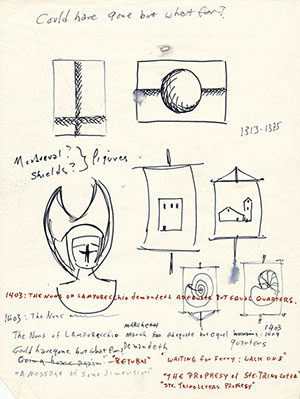 Could have gone but what for?
1313-1375
Medieval?
Shields?
Figures
1403: THE NUNS OF LAMPORECCHIO demandeth ADEQUATE BUT EQUAL QUARTERS.
1403: The Nuns
MARCHETH
1403
The Nuns of Lamporecchio march for Adequate but equal housing. 1404
Demandeth
quarters
Could have gone but what for?
Going home again "RETURN"
"A Message of Some dimension"
"WAITING FOR FERRY: WALK ONS"
"THE PROPHESY OF STE. TRINO LETTA"
"STE. TRINO LETTA'S PROPHESY"